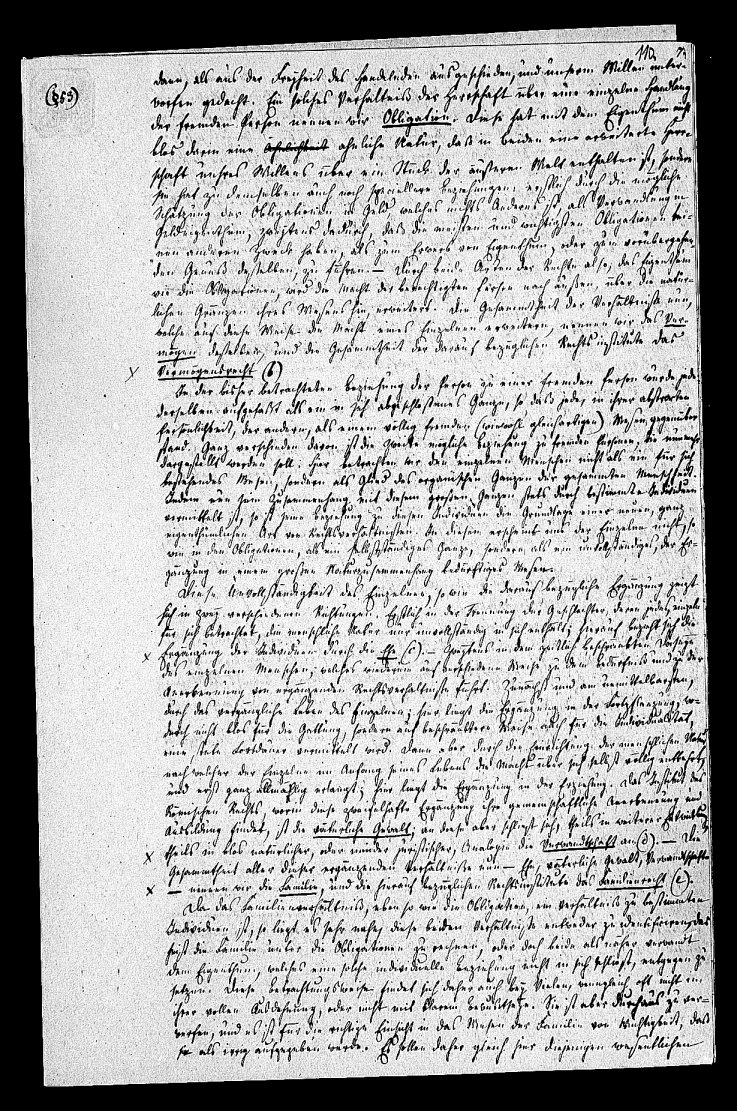 110.
(§53)
dann, als aus der Freiheit des Handelnden ausgeschieden, und unserm Willen unter-
worfen gedacht. Ein solches Verhältniß der Herrschaft über eine einzelne Handlung
der fremden Person nennen wir Obligation. Diese hat mit dem Eigenthum nicht
blos darin eine ähnliche Natur, daß in beiden eine erweiterte Herr-
schaft unsres Willens über ein Stück der äußeren Welt enthalten ist, sondern
sie hat zu demselben auch noch speciellere Beziehungen: erstlich durch die mögliche
Schätzung der Obligationen in Geld, welches nichts Anderes ist, als Verwandlung in
Geldeigenthum; zweytens dadurch, daß die meisten und wichtigsten Obligationen kei-
nen anderen Zweck haben, als zum Erwerb von Eigenthum, oder zum vorübergehen-
den Genuß desselben, zu führen. – Durch beide Arten der Rechte also, das Eigenthum
wie die Obligationen, wird die Macht der berechtigten Person nach außen, über die natür-
lichen Gränzen ihres Wesens hin, erweitert. Die Gesammtheit der Verhältnisse nun,
welche auf diese Weise die Macht eines Einzelnen erweitern, nennen wir das Ver-
mögen desselben, und die Gesammtheit der darauf bezüglichen Rechtsinstitute das
Vermögensrecht (b)
In der bisher betrachteten Beziehung der Person zu einer fremden Person wurde jede
derselben aufgefaßt als ein in sich abgeschlossenes Ganze, so daß jede, in ihrer abstracten
Persönlichkeit, der andern, als einem völlig fremden (wiewohl gleichartigen) Wesen, gegenüber
stand. Ganz verschieden davon ist die zweite mögliche Beziehung zu fremden Personen, die nunmehr
dargestellt werden soll. Hier betrachten wir den einzelnen Menschen nicht als ein für sich
bestehendes Wesen, sondern als Glied des organischen Ganzen der gesammten Menschheit.
Indem nun sein Zusammenhang mit diesem großen Ganzen stets durch bestimmte Individuen
vermittelt ist, so ist seine Beziehung zu diesen Individuen die Grundlage einer neuen, ganz
eigenthümlichen Art von Rechtsverhältnissen. In diesen erscheint uns der Einzelne nicht, so
wie in den Obligationen, als ein selbstständiges Ganze, sondern als ein unvollständiges, der Er-
gänzung in einem großen Naturzusammenhang bedürftiges Wesen.
Diese Unvollständigkeit des Einzelnen, so wie die darauf bezügliche Ergänzung zeigt
sich in zwey verschiedenen Richtungen. Erstlich in der Trennung der Geschlechter, deren jedes, einzeln
für sich betrachtet, die menschliche Natur nur unvollständig in sich enthält; hierauf bezieht sich die
Ergänzung der Individuen durch die Ehe (c). – Zweytens in dem zeitlich beschränkten Daseyn
des einzelnen Menschen, welches wiederum auf verschiedene Weise zu dem Bedürfniß und zu der
Anerkennung von ergänzenden Rechtsverhältnissen führt. Zunächst und am unmittelbarsten,
durch das vergängliche Leben des Einzelnen; hier liegt die Ergänzung in der Fortpflanzung, wo-
durch nicht blos für die Gattung, sondern auf beschränktere Weise auch für die Individualität,
eine stete Fortdauer vermittelt wird. Dann aber durch die Einrichtung der menschlichen Natur,
nach welcher der Einzelne im Anfang seines Lebens die Macht über sich selbst völlig entbehrt
und erst ganz allmählig erlangt; hier liegt die Ergänzung in der Erziehung. Das Institut des
Römischen Rechts, worin diese zweifelhafte Ergänzung ihre gemeinschaftliche Anerkennung und
Ausbildung findet, ist die väterliche Gewalt; an diese aber schließt sich, theils in weiterer Entwicklung
theils in blos natürlicher, oder minder juristischer, Analogie die Verwandtschaft an (d). – Die
Gesammtheit aller dieser ergänzenden Verhältnisse nun – Ehe, väterliche Gewalt, Verwandtschaft
– nennen wir die Familie, und die hierauf bezüglichen Rechtsinstitute das Familienrecht (e).
Da das Familienverhältniß, eben so wie die Obligation, ein Verhältniß zu bestimmten
Individuen ist, so liegt es sehr nahe, diese beiden Verhältnisse entweder zu identificiren, das
heißt die Familie unter die Obligationen zu rechnen, oder doch beide als näher verwandt
dem Eigenthum, welches eine solche individuelle Beziehung nicht in sich schließt, entgegen zu
setzen. Diese Betrachtungsweise findet sich daher auch bey Vielen, wenngleich oft nicht in
ihrer vollen Ausdehnung, oder nicht mit klarem Bewußtseyn. Sie ist aber durchaus zu ver-
werfen, und es ist für die richtige Einsicht in das Wesen der Familie von Wichtigkeit, daß
sie als irrig aufgegeben werde. Es sollen daher gleich hier diejenigen wesentlichen